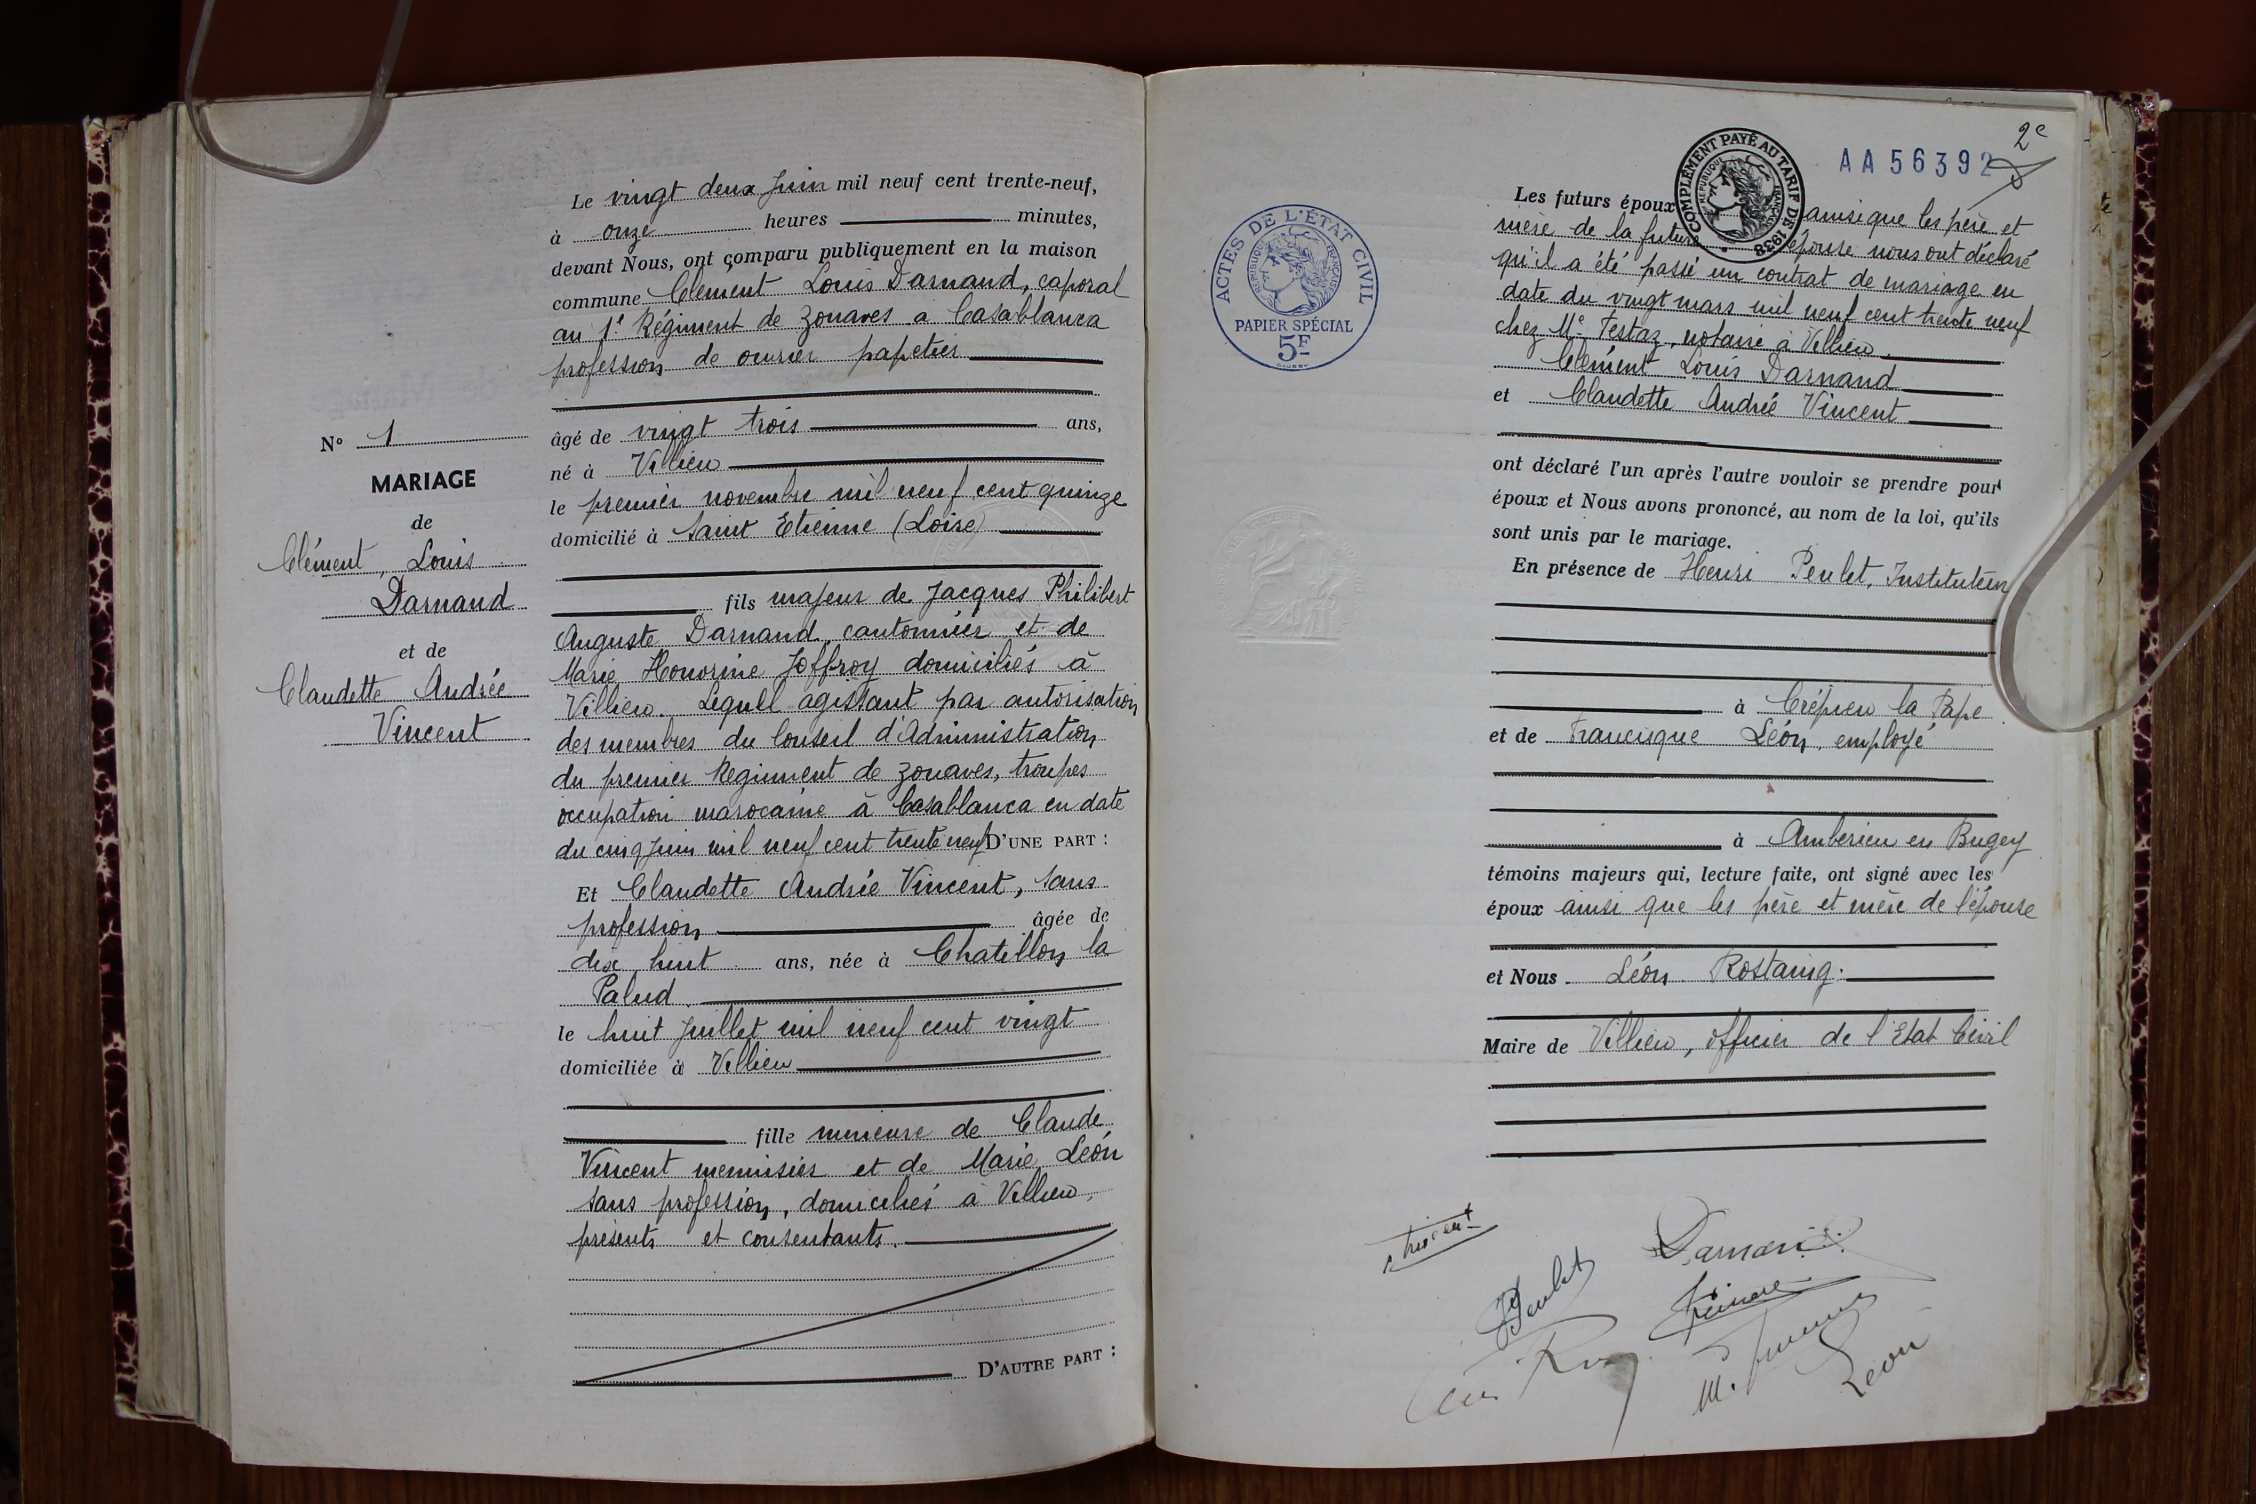 N° 1
MARIAGE
de
Clément, Louis
Darnand
et de
Claudette Andrée
Vincent
Le vingt deux Juin mil neuf cent trente-neuf,
à onze heures minutes,
devant Nous, ont comparu publiquement en la maison
commune Clément Louis Darnand, caporal
au 1e Régiment de Zouaves a Casablanca
profession de ouvrier papetier
âgé de vingt trois ans,
né à Villieu
le premier novembre mil neuf cent quinze
domicilié à Saint Etienne (Loire)
fils majeur de Jacques Philibert
Auguste Darnand, cantonnier et de
Marie Honorine Joffroy domiciliés à
Villieu. Lequel agissant par autorisation
des membres du Conseil d'Administration
du premier Régiment de Zouaves, troupes
occupation marocaine à Casablanca en date
du cinq Juin mil neuf cent trente neuf D'UNE PART :
Et Claudette Andrée Vincent, sans
profession âgée de
dix huit ans, née à Chatillon la
Palud.
le huit Juillet mil neuf cent vingt
domiciliée à Villieu
fille mineure de Claude
Vincent menuisier et de Marie Léon
sans profession, domiciliés à Villieu,
présents et consentants.
D'AUTRE PART :
2e
AA 56392
COMPLÉMENT PAYÉ AU TARIF DE 1938
REPUBLIQUE FRANÇAISE
ACTES DE L'ÉTAT CIVIL
REPUBLIQUE FRANÇAISE
PAPIER SPÉCIAL
5F
Les futurs époux ainsi que les père et
mère de la future épouse nous ont déclaré
qu'il a été passé un contrat de mariage en
date du vingt mars mil neuf cent trente neuf
chez Me Festaz, notaire à Villieu.
Clément Louis Darnand
et Claudette Andrée Vincent
ont déclaré l'un après l'autre vouloir se prendre pour
époux et Nous avons prononcé, au nom de la loi, qu'ils
sont unis par le mariage.
En présence de Henri Peulet, Instituteur
à Crépieu la Pape
et de Francisque Léon, employé
à Ambérieu en Bugey
témoins majeurs qui, lecture faite, ont signé avec les
époux ainsi que les père et mère de l'épouse
et Nous. Léon Rostaing.
Maire de Villieu, officier de l'Etat Civil
Vincent
Darnand
Peulet
Léon